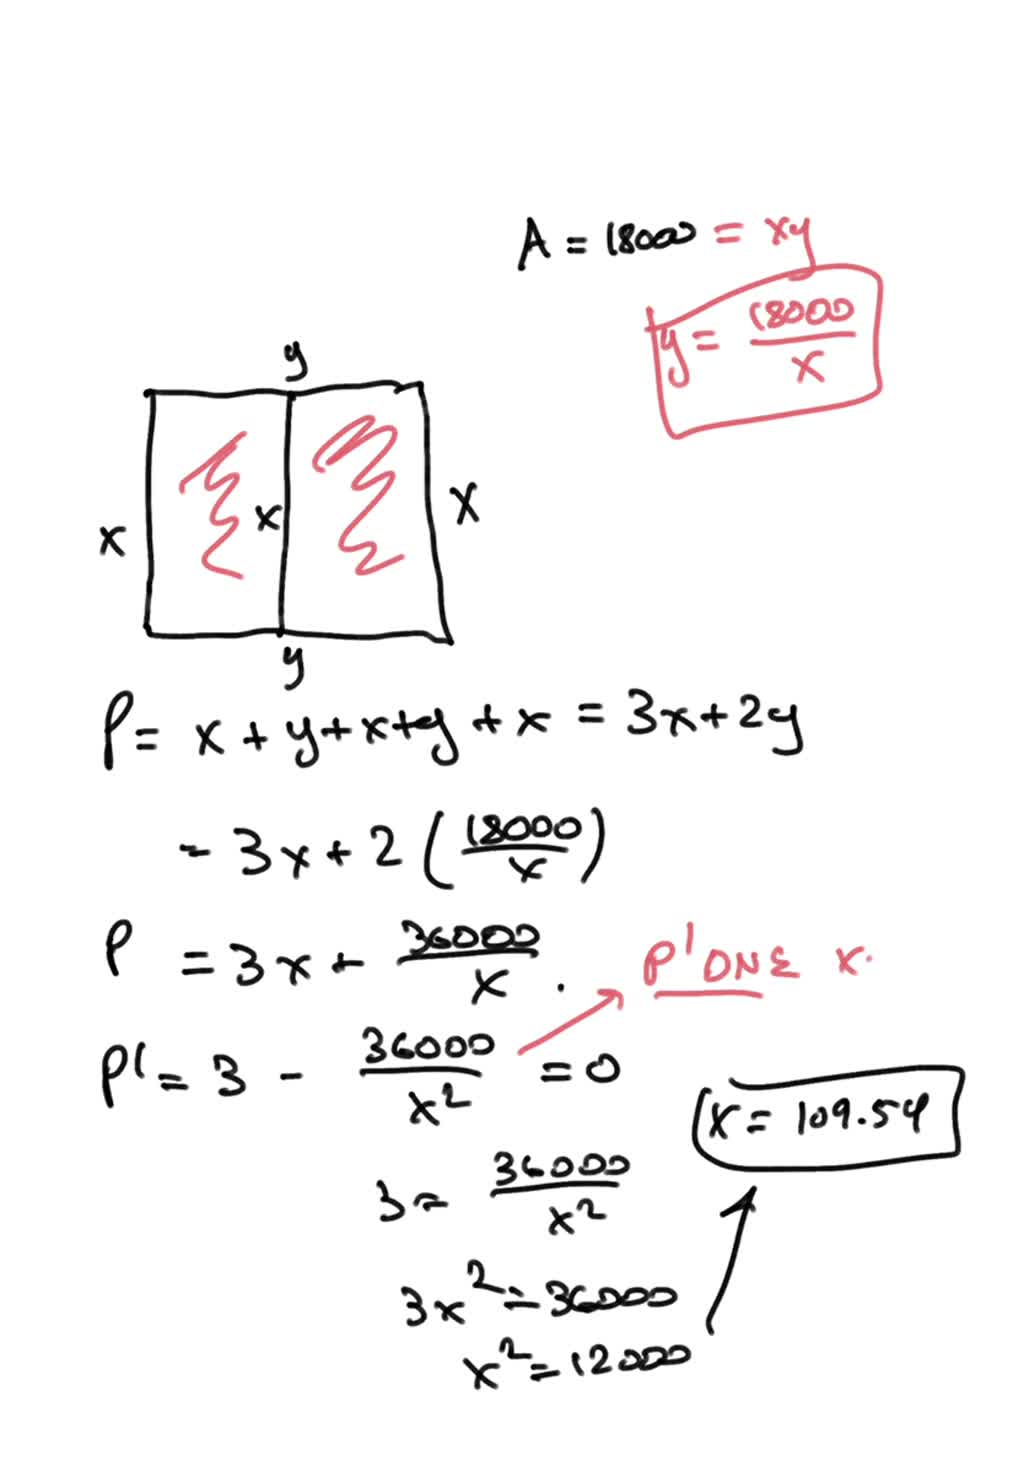 A = 18000 = xy
y = 18000/x
y
x x X
y
P = x + y + x + y + x = 3x + 2y
= 3x + 2 (18000/x)
P = 3x + 36000/x .
P' ONE x.
P' = 3 - 36000/x² = 0
x = 109.54
3 = 36000/x²
3x² = 36000
x² = 12000